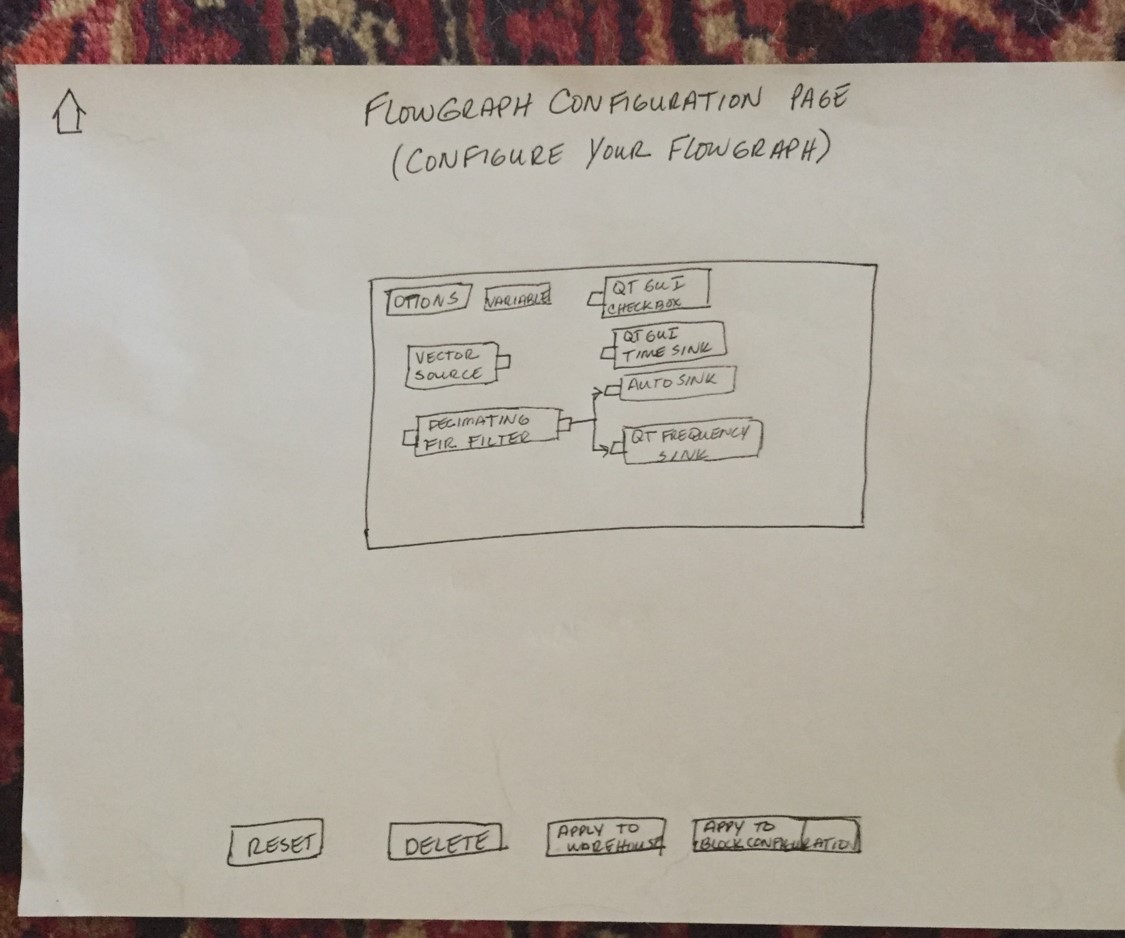 FLOWGRAPH CONFIGURATION PAGE
(CONFIGURE YOUR FLOWGRAPH)
OTIONS
VARIABLE
QT GUI
CHECKBOX
VECTOR
SOURCE
QT GUI
TIME SINK
AUTO SINK
DECIMATING
FIR FILTER
QT FREQUENCY
SINK
RESET
DELETE
APPLY TO
WAREHOUSE
APPY TO
BLOCK CONFIGURATION